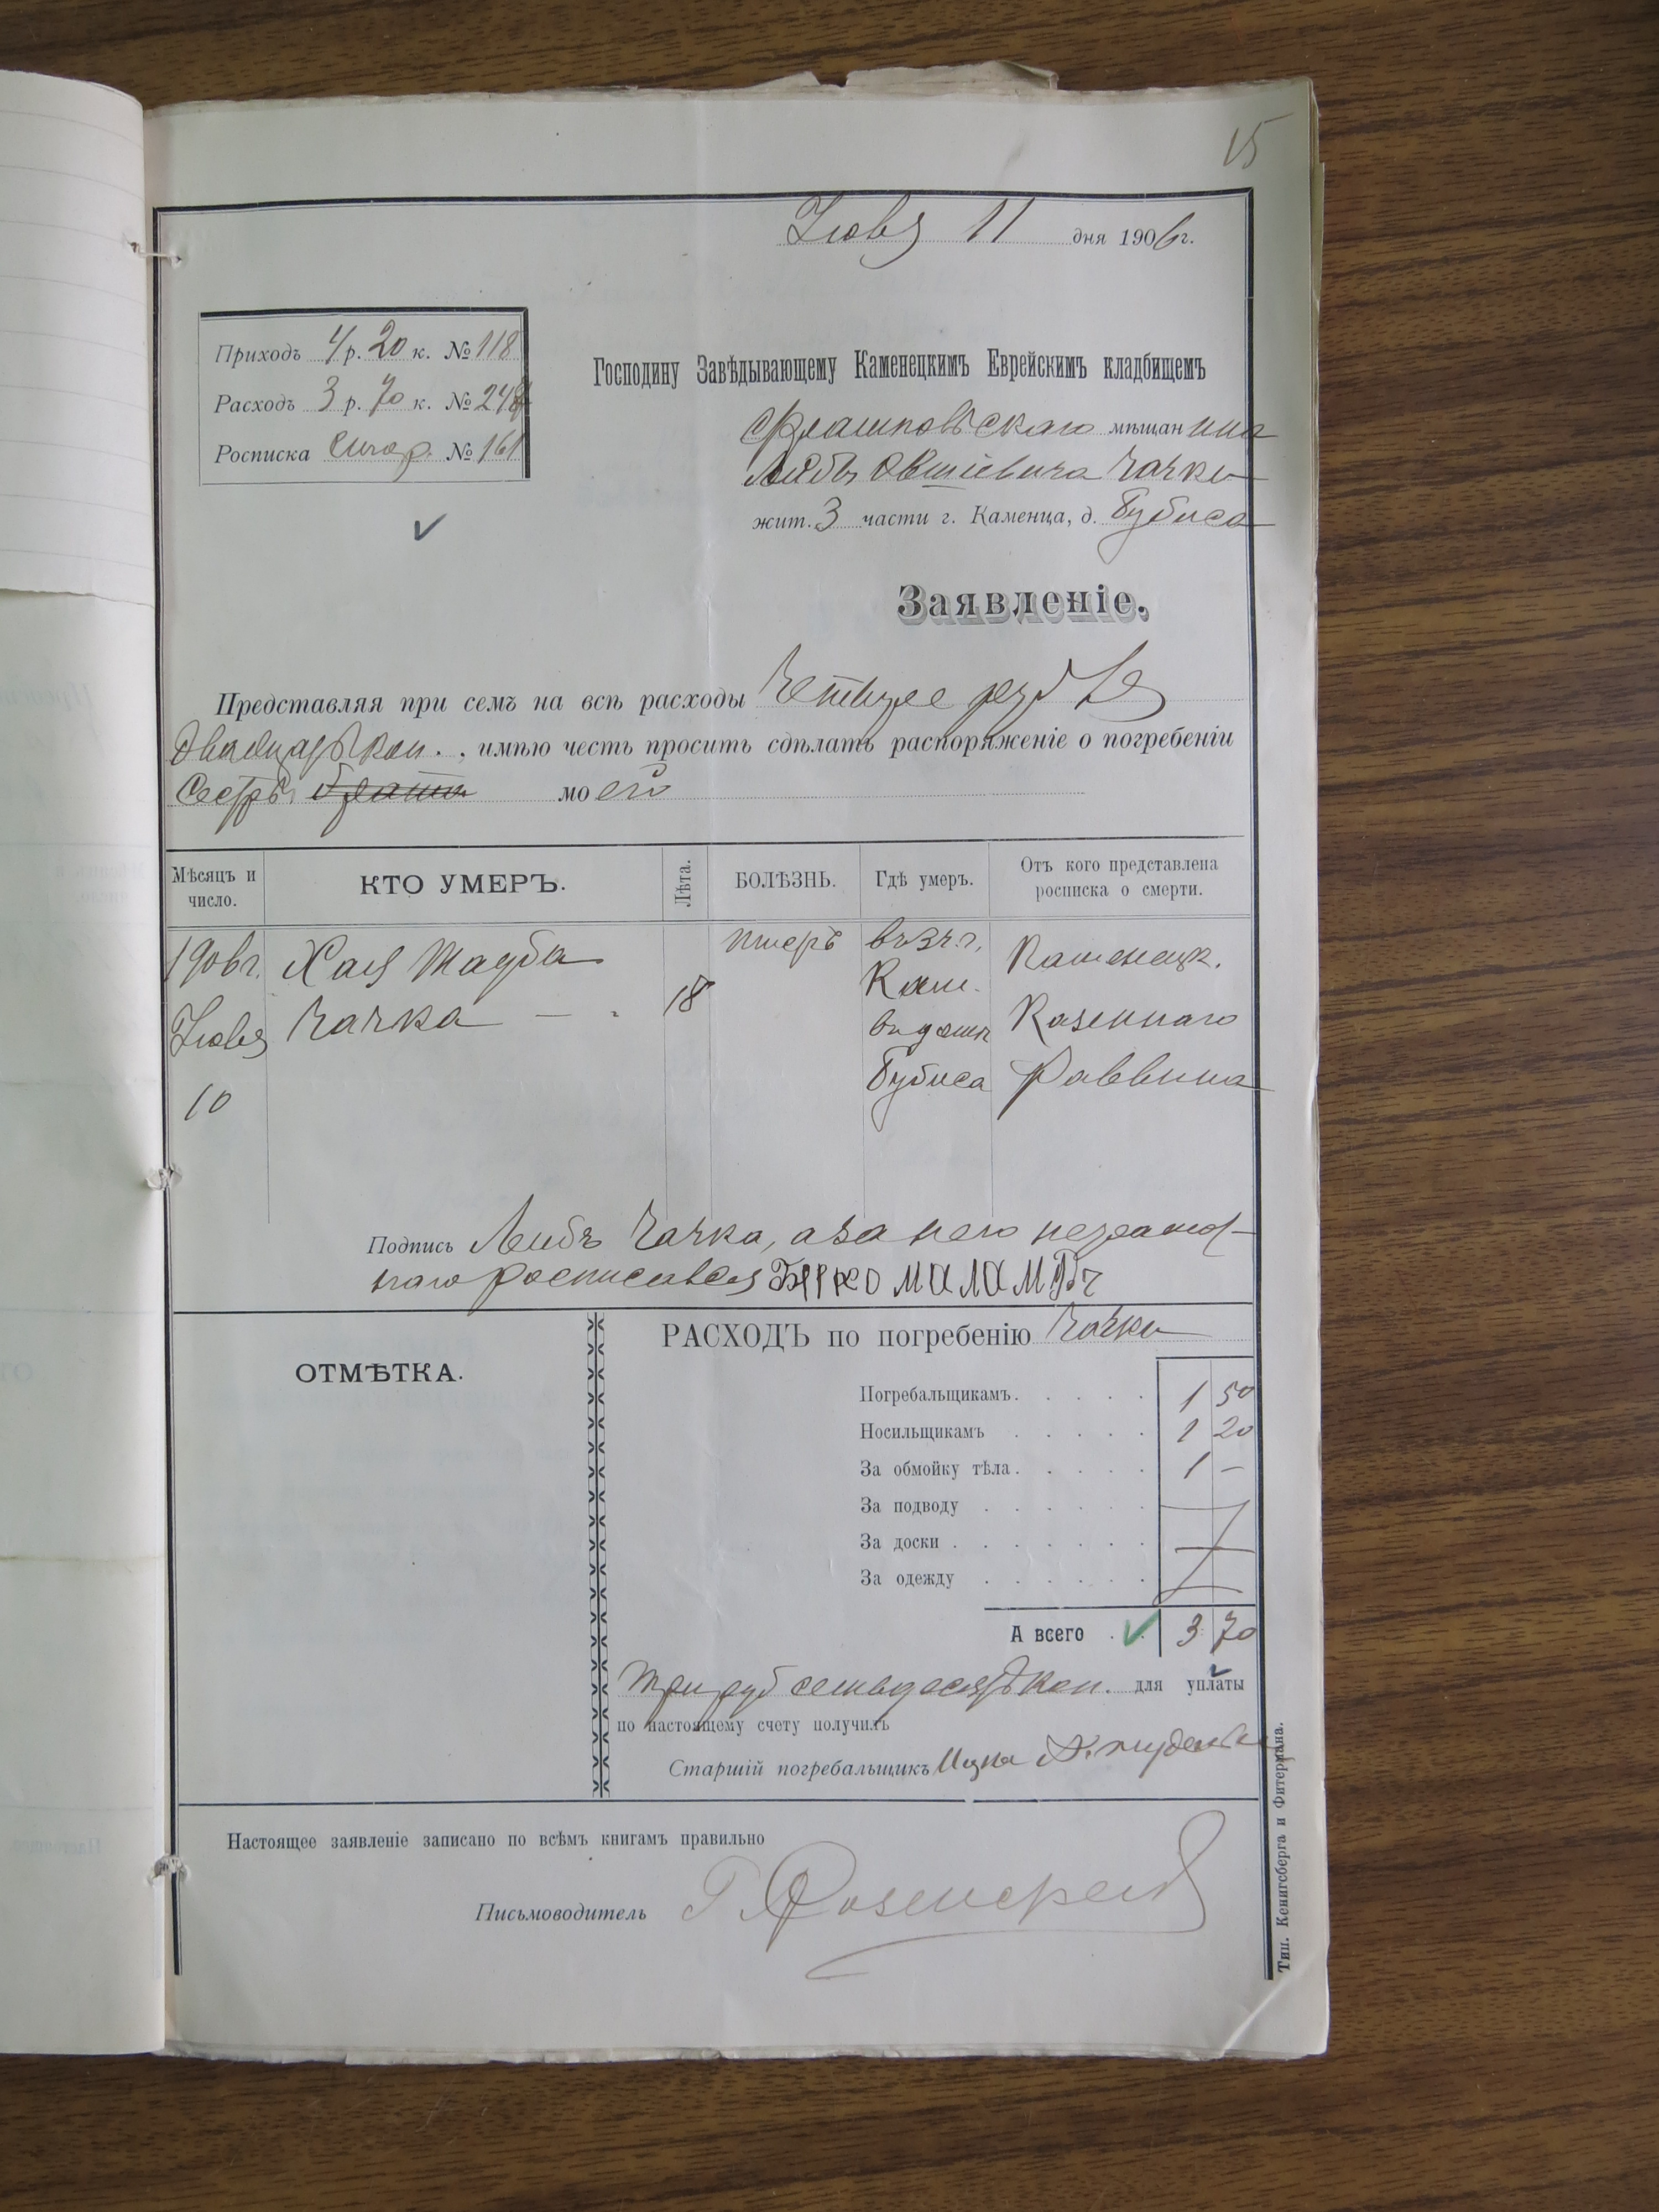 15
Іюля 11 дня 1906 г.
Приходъ 4 р. 20 к. № 118
Расходъ 3 р. 70 к. № 248
Росписка № 161
Господину Завѣдывающему Каменецкимъ Еврейскимъ кладбищемъ
мѣщанина
Чачки
жит. 3 части г. Каменца, д. Губиса
Заявленіе.
Представляя при семъ на всѣ расходы Четыре руб
двадцать коп., имѣю честь просить сдѣлать распоряженіе о погребеніи
Сестры брата моей
Мѣсяцъ и число.
КТО УМЕРЪ.
Лѣта.
БОЛѢЗНЬ.
Гдѣ умеръ.
Отъ кого представлена росписка о смерти.
1906 г. Іюля 10
Хая Чачка
18
въ 3 ч. г. Кам. въ домѣ Губиса
Каменецк. Казеннаго Раввина
Подпись Лейбъ Чачка, а за него неграмот-
наго росписался
РАСХОДЪ по погребенію Чачки
ОТМѢТКА.
Погребальщикамъ. 1 50
Носильщикамъ 1 20
За обмойку тѣла. 1 —
За подводу
За доски
За одежду
А всего 3 70
Три руб семьдесятъ коп. для уплаты
по настоящему счету получилъ
Старшій погребальщикъ Ицка
Настоящее заявленіе записано по всѣмъ книгамъ правильно
Письмоводитель
Тип. Кенигсберга и Фитермана.